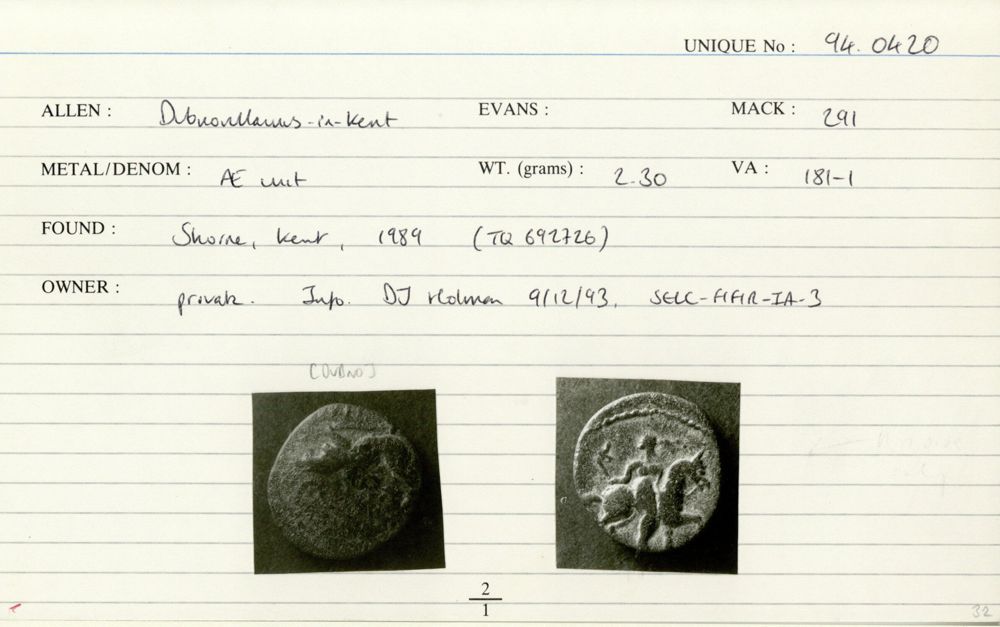 UNIQUE No : 94.0420
ALLEN : Dubnovellaunus-in-Kent EVANS : MACK : 291
METAL/DENOM : Æ unit WT. (grams) : 2.30 VA : 181-1
FOUND : Shorne, Kent, 1989 (TQ 692726)
OWNER : private. Info. DJ Holman 9/12/93. SELC-FIFIR-IA-3
[DVBNO]
2
1
32